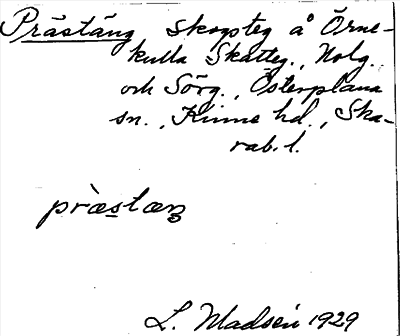 Prästäng skogsteg å Örne-
kulla Skatteg., Nolg.
och Sörg., Österplana
sn., Kinne hd., Ska-
rab. l.
præ̀stæŋ
L. Madsén 1929